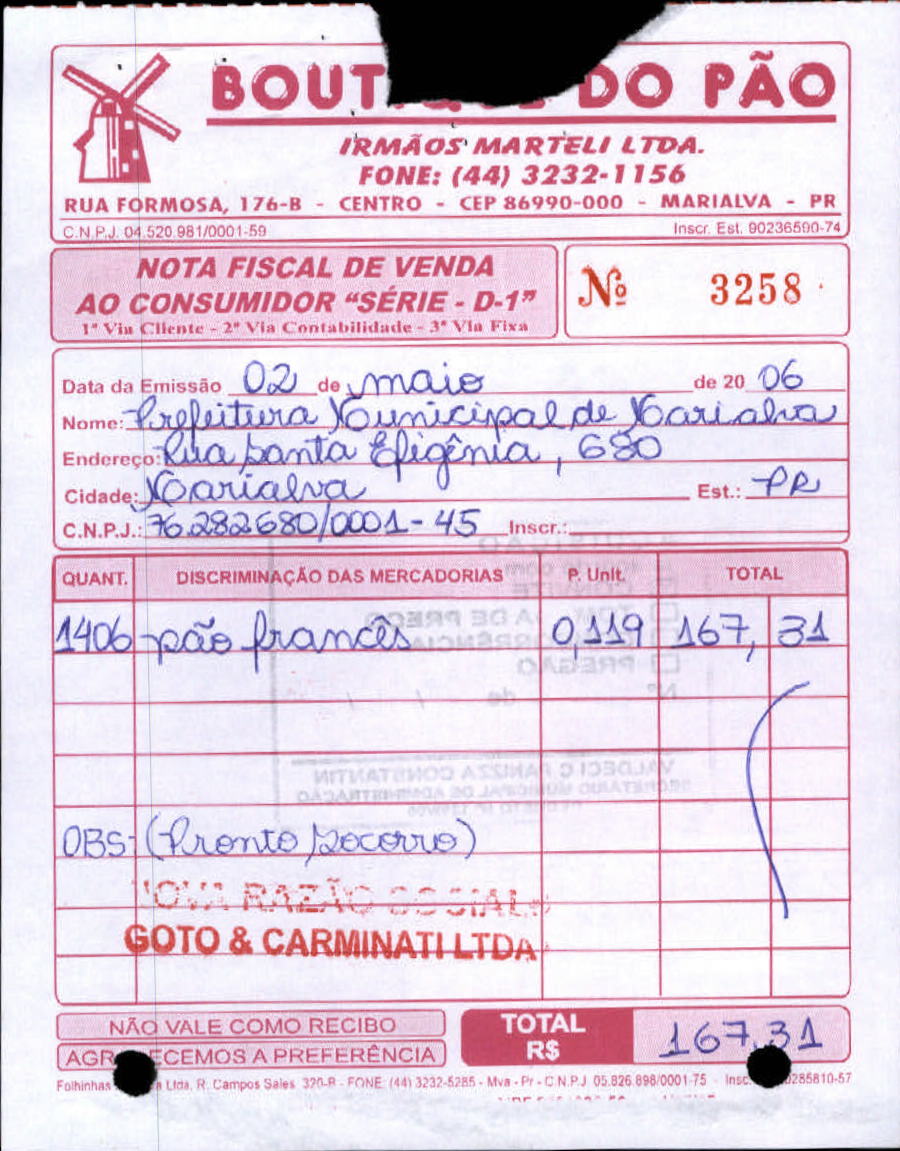 BOUTIQUE DO PÃO
IRMÃOS MARTELI LTDA.
FONE: (44) 3232-1156
RUA FORMOSA, 176-B - CENTRO - CEP 86990-000 - MARIALVA - PR
C.N.P.J. 04.520.981/0001-59 Inscr. Est. 90236590-74
NOTA FISCAL DE VENDA
AO CONSUMIDOR “SÉRIE - D-1”
1ª Via Cliente - 2ª Via Contabilidade - 3ª Via Fixa
Nº 3258
Data da Emissão 02 de maio de 20 06
Nome: Prefeitura Municipal de Marialva
Endereço: Rua Santa Efigênia, 680
Cidade: Marialva Est.: PR
C.N.P.J.: 76.282.680/0001-45 Inscr.:
QUANT. DISCRIMINAÇÃO DAS MERCADORIAS P. Unit. TOTAL
1406 pão francês 0,119 167,31
OBS: (Pronto Socorro)
NOVA RAZÃO SOCIAL:
GOTO & CARMINATI LTDA
NÃO VALE COMO RECIBO
AGRADECEMOS A PREFERÊNCIA
TOTAL
R$ 167,31
Folhinhas Ltda. R. Campos Sales, 320-B - FONE: (44) 3232-5285 - Mva - Pr - C.N.P.J. 05.826.898/0001-75 - Insc. 0285810-57